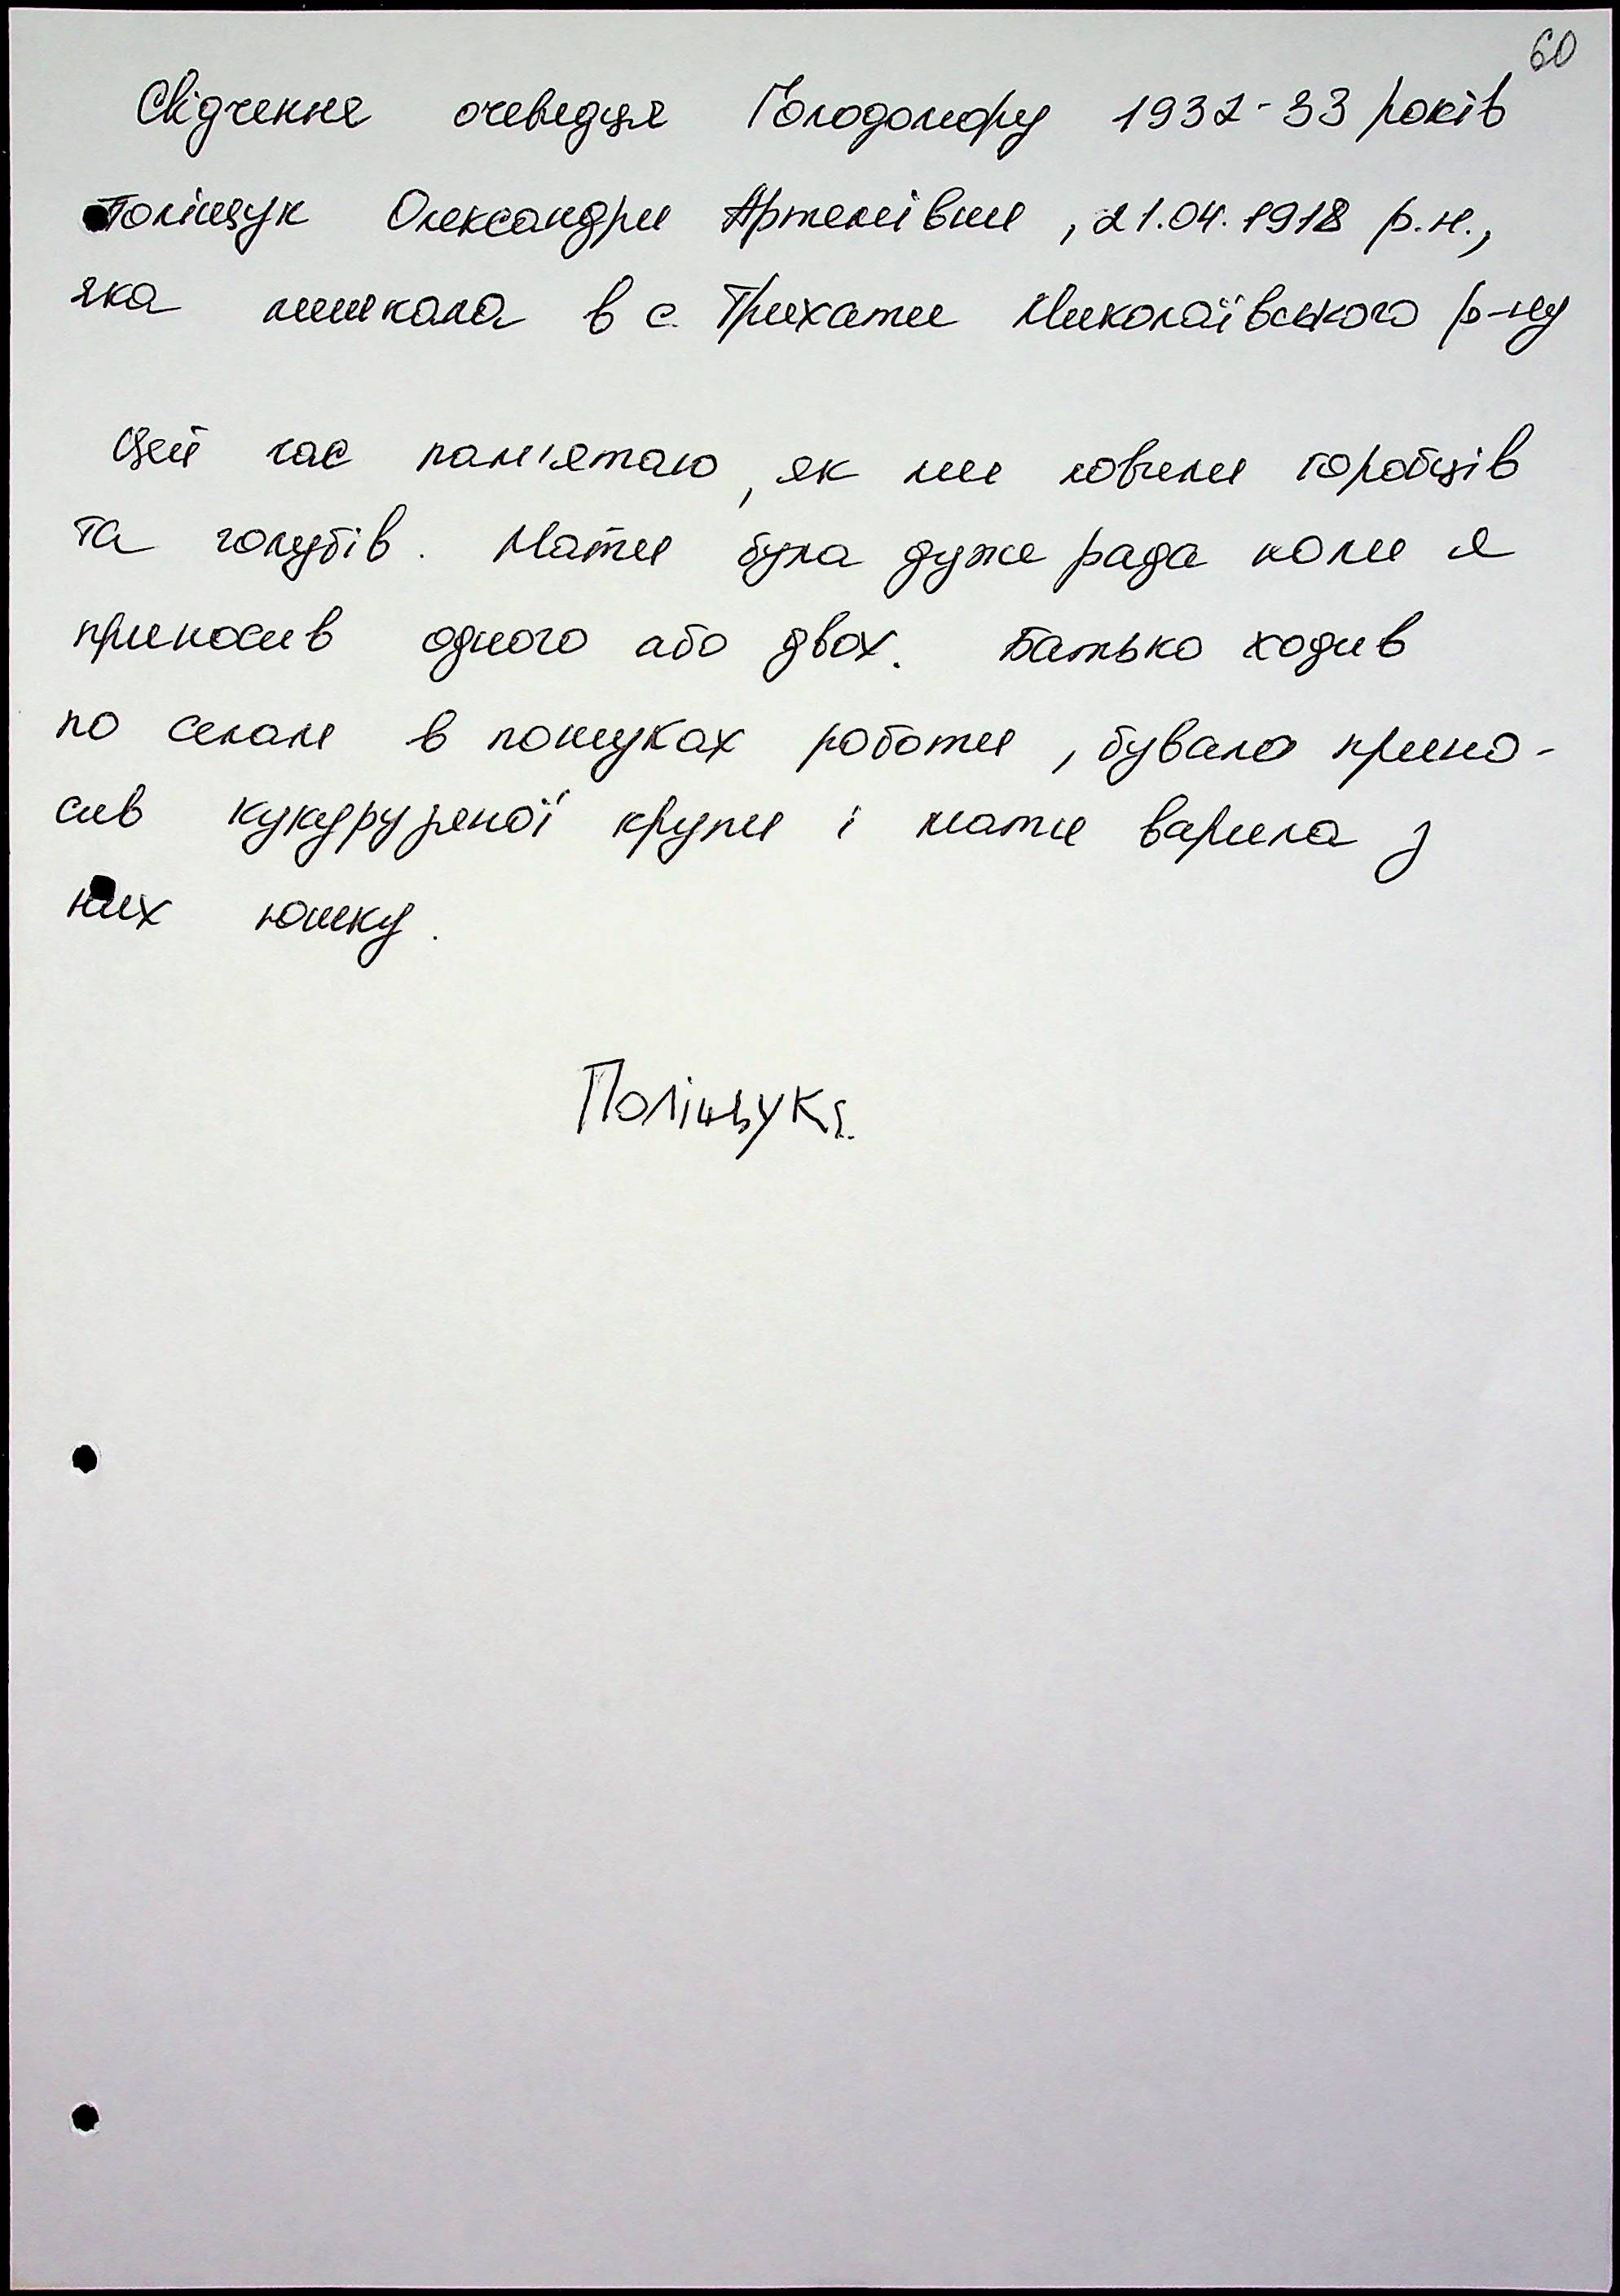 60
Свідчення очевидця Голодомору 1932-33 років
Поліщук Олександри Артемівни, 21.04.1918 р.н.,
яка мешкала в с. Трихати Миколаївського р-ну
Цей час пам'ятаю, як ми ловили горобців
та голубів. Мати була дуже рада коли я
приносив одного або двох. Батько ходив
по селам в пошуках роботи, бувало прино-
сив кукурузяної крупи і мати варила з
них юшку.
Поліщук